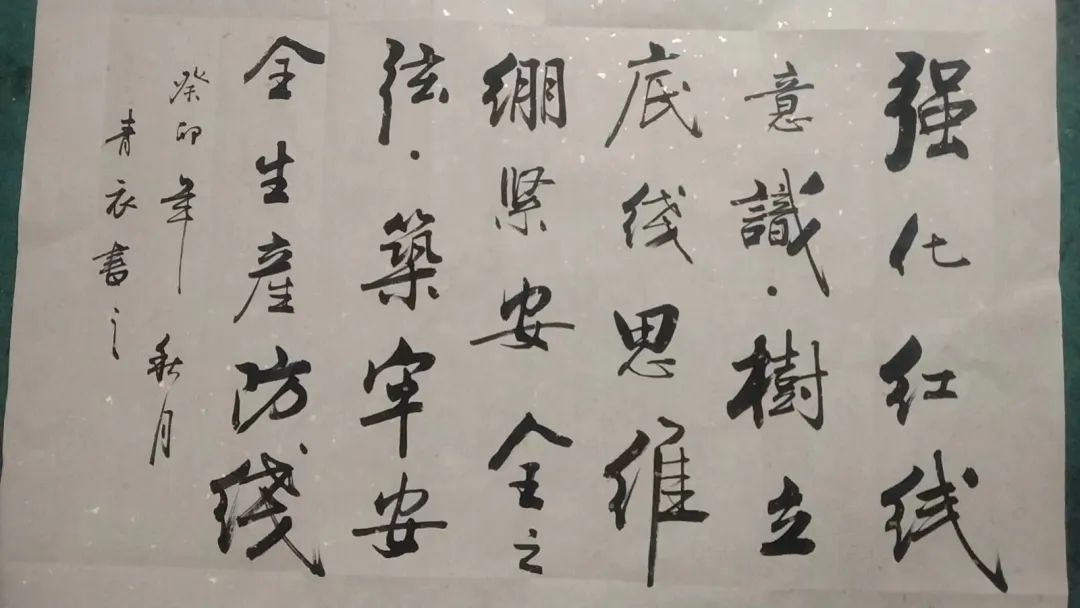 强化红线
意識·樹立
底线思维
绷紧安全之
弦·築牢安
全生産防线
癸卯年秋月
青衣書之